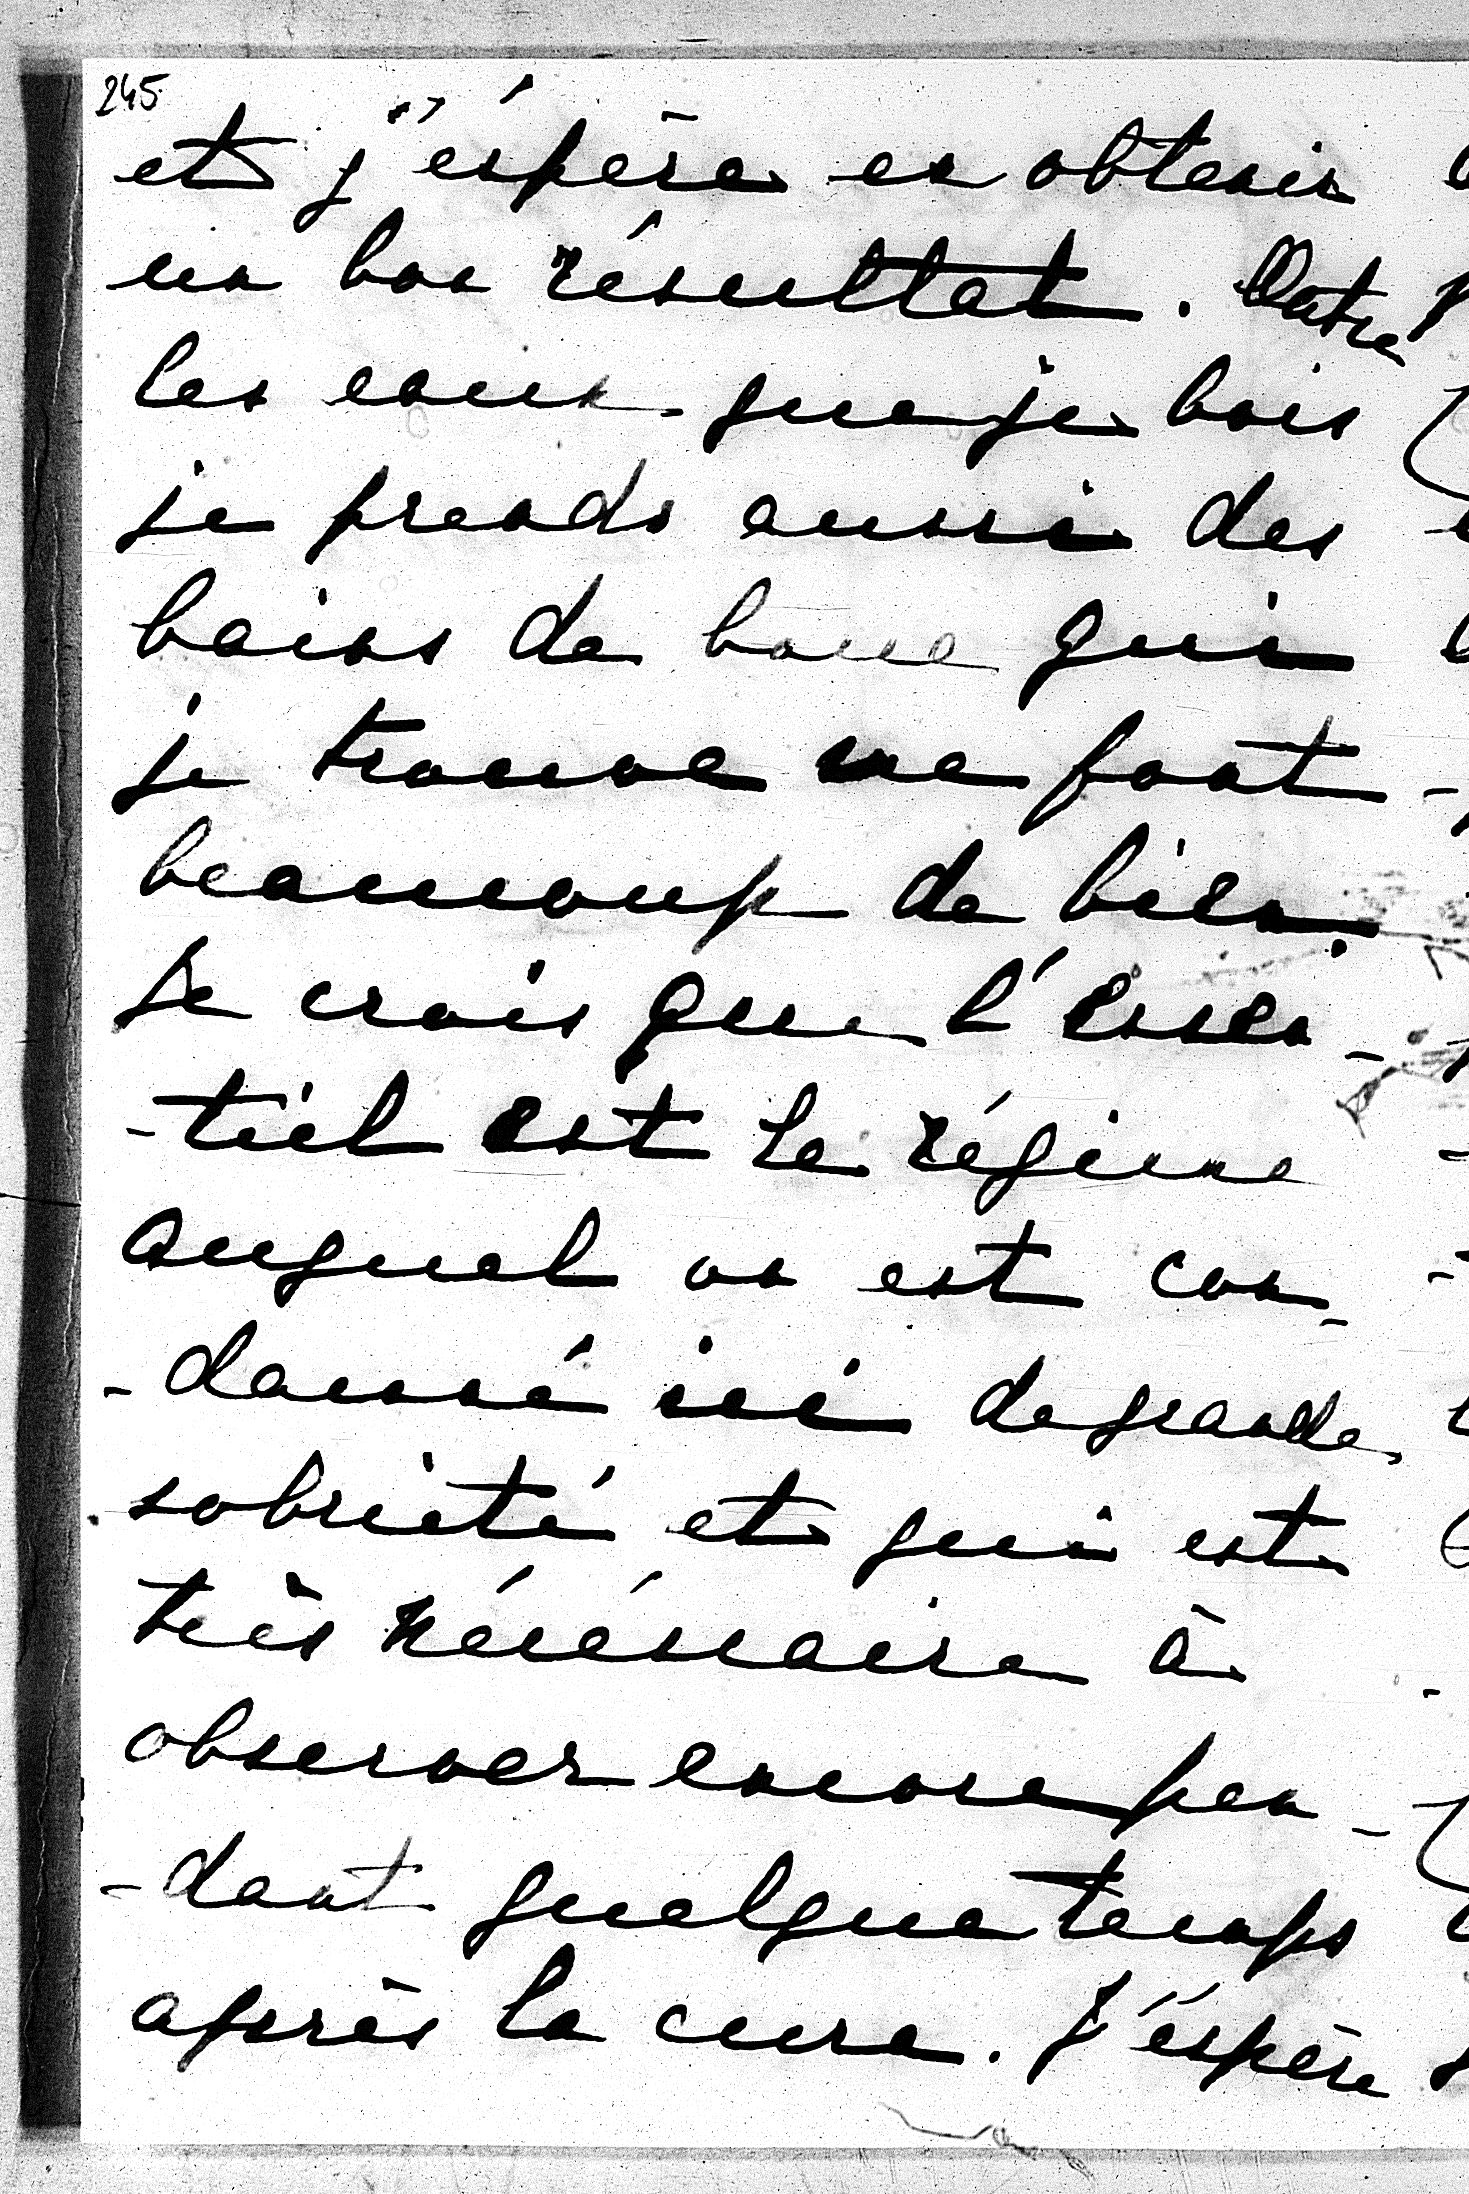 245
et j'éspère en obtenir
un bon résultat. Outre
les eaux que je bois
je prends aussi des
bains de boue qui
je trouve me font
beaucoup de bien.
Je crois que l'essen-
-tiel est le régime
auquel on est con-
-damné ici de grande
sobrieté et qui est
très nécéssaire à
observer encore pen-
-dant quelque temps
après la cure. J'éspère